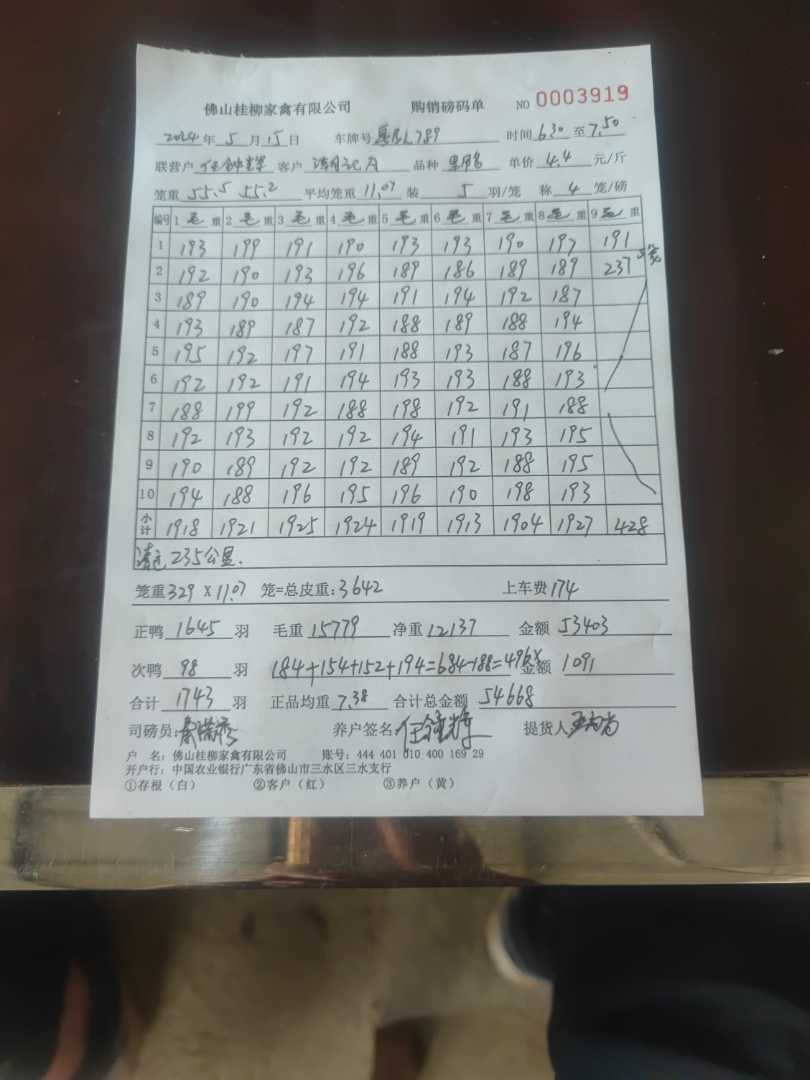 佛山桂柳家禽有限公司 购销磅码单 NO 0003919
2024年5月15日 车牌号 L789 时间6.30至7.50
联营户 任钟辉 客户 清 品种 单价4.4元/斤
笼重55.5 55.2 平均笼重11.07装5羽/笼 称4笼/磅
编号 1毛重 2毛重 3毛重 4毛重 5毛重 6毛重 7毛重 8毛重 9毛重
1 193 199 191 190 193 193 190 197 191
2 192 190 193 196 189 186 189 189 237
3 189 190 194 194 191 194 192 187
4 193 189 187 192 188 189 188 194
5 195 192 197 191 188 193 187 196
6 192 192 191 194 193 193 188 193
7 188 199 192 188 198 192 191 188
8 192 193 192 192 194 191 193 195
9 190 189 192 192 189 192 188 195
10 194 188 196 195 196 190 198 193
小计 1918 1921 1925 1924 1919 1913 1904 1927 428
清远235公里.
笼重329X11.07笼=总皮重:3642 上车费174
正鸭1645羽 毛重15779净重12137 金额53403
次鸭98羽 184+154+152+194=684-188=496X 金额1091
合计1743羽 正品均重7.38合计总金额54668
司磅员: 养户签名任钟辉 提货人
户 名:佛山桂柳家禽有限公司 账号:444 401 010 400 169 29
开户行:中国农业银行广东省佛山市三水区三水支行
①存根(白) ②客户(红) ③养户(黄)